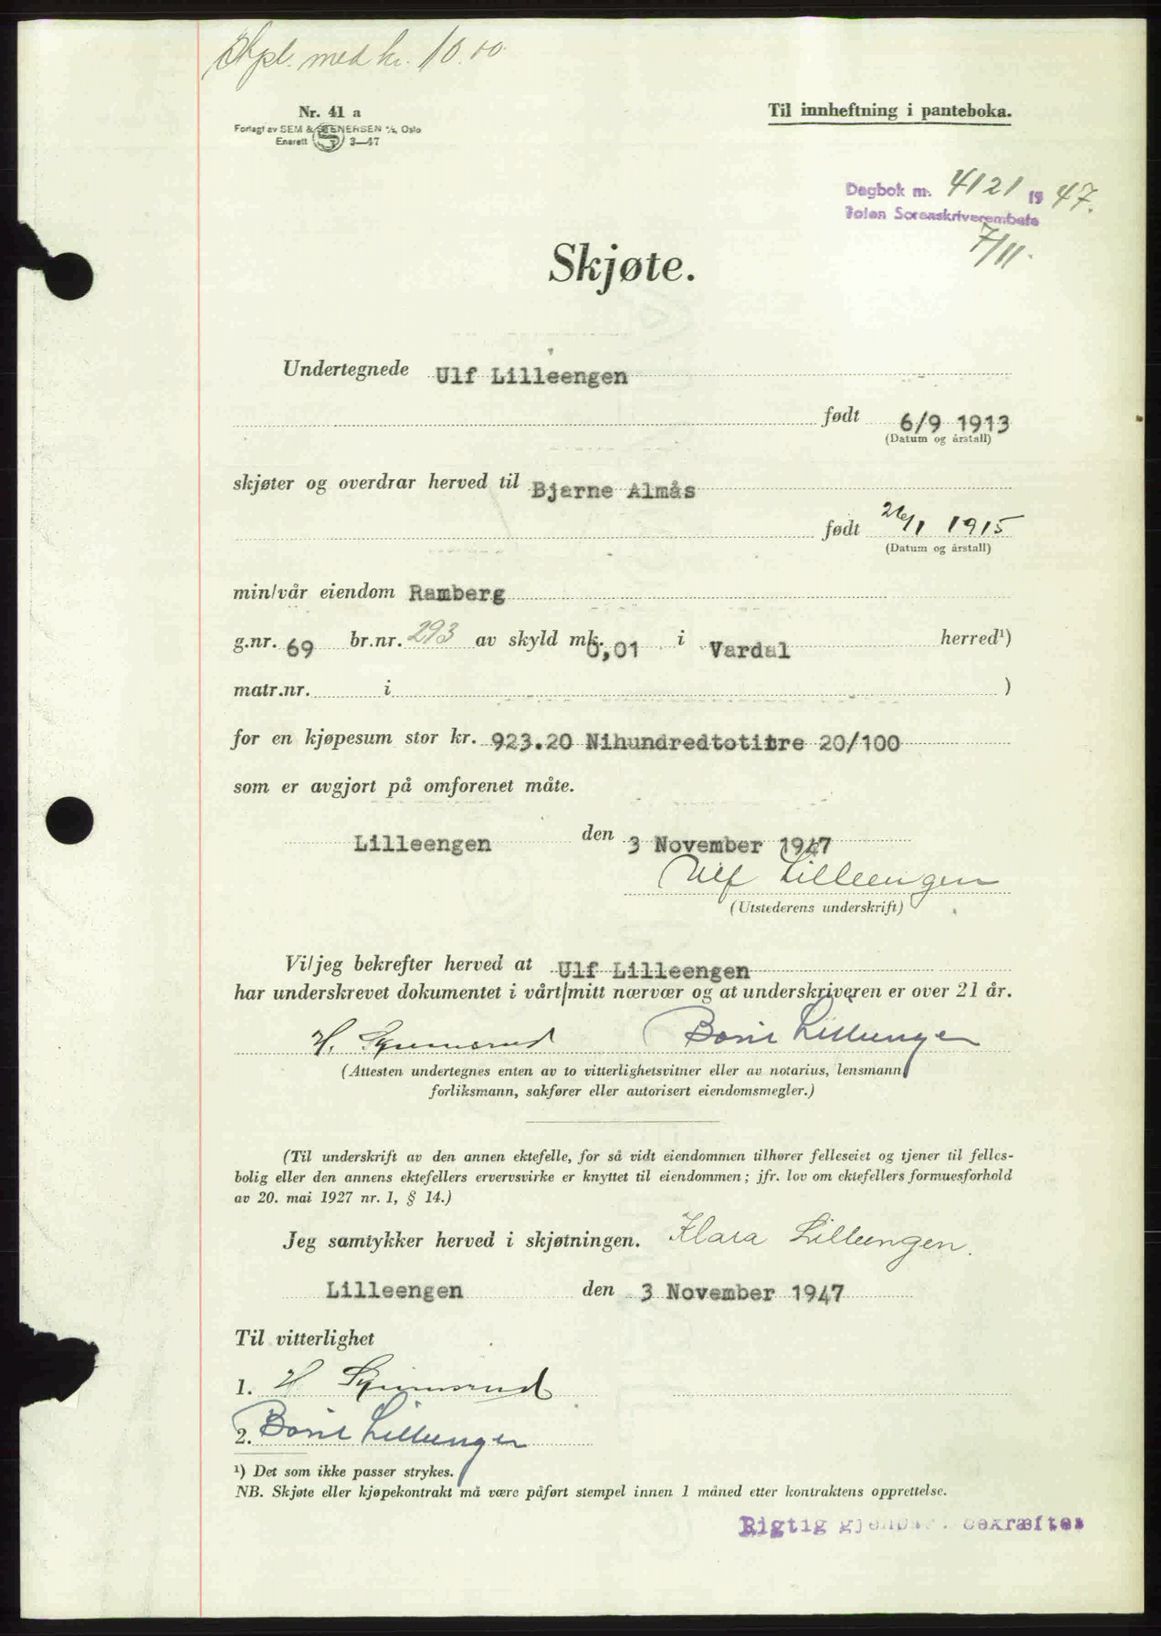 Stpl. med kr. 10.00
Nr. 41 a
Forlagt av SEM & STENERSEN A/S, Oslo
Enerett S 3—47
Til innheftning i panteboka.
Dagbok nr. 4121 1947.
Toten Sorenskriverembete
7/11.
Skjøte.
Undertegnede Ulf Lilleengen
født 6/9 1913
(Datum og årstall)
skjøter og overdrar herved til Bjarne Almås
født 26/1 1915
(Datum og årstall)
min/vår eiendom Ramberg
g.nr. 69 br.nr. 293 av skyld mk. 0,01 i Vardal herred¹)
matr.nr. i )
for en kjøpesum stor kr. 923.20 Nihundredtotitre 20/100
som er avgjort på omforenet måte.
Lilleengen den 3 November 1947
Ulf Lilleengen
(Utstederens underskrift)
Vi/jeg bekrefter herved at Ulf Lilleengen
har underskrevet dokumentet i vårt/mitt nærvær og at underskriveren er over 21 år.
H. Lilleengen
(Attesten undertegnes enten av to vitterlighetsvitner eller av notarius, lensmann,
forliksmann, sakfører eller autorisert eiendomsmegler.)
(Til underskrift av den annen ektefelle, for så vidt eiendommen tilhører felleseiet og tjener til felles-
bolig eller den annens ektefellers ervervsvirke er knyttet til eiendommen; jfr. lov om ektefellers formuesforhold
av 20. mai 1927 nr. 1, § 14.)
Jeg samtykker herved i skjøtningen. Klara Lilleengen.
Lilleengen den 3 November 1947
Til vitterlighet
1. H
2. Lilleengen
¹) Det som ikke passer strykes.
NB. Skjøte eller kjøpekontrakt må være påført stempel innen 1 måned etter kontraktens opprettelse.
Rigtig gjenpar. bekræftes